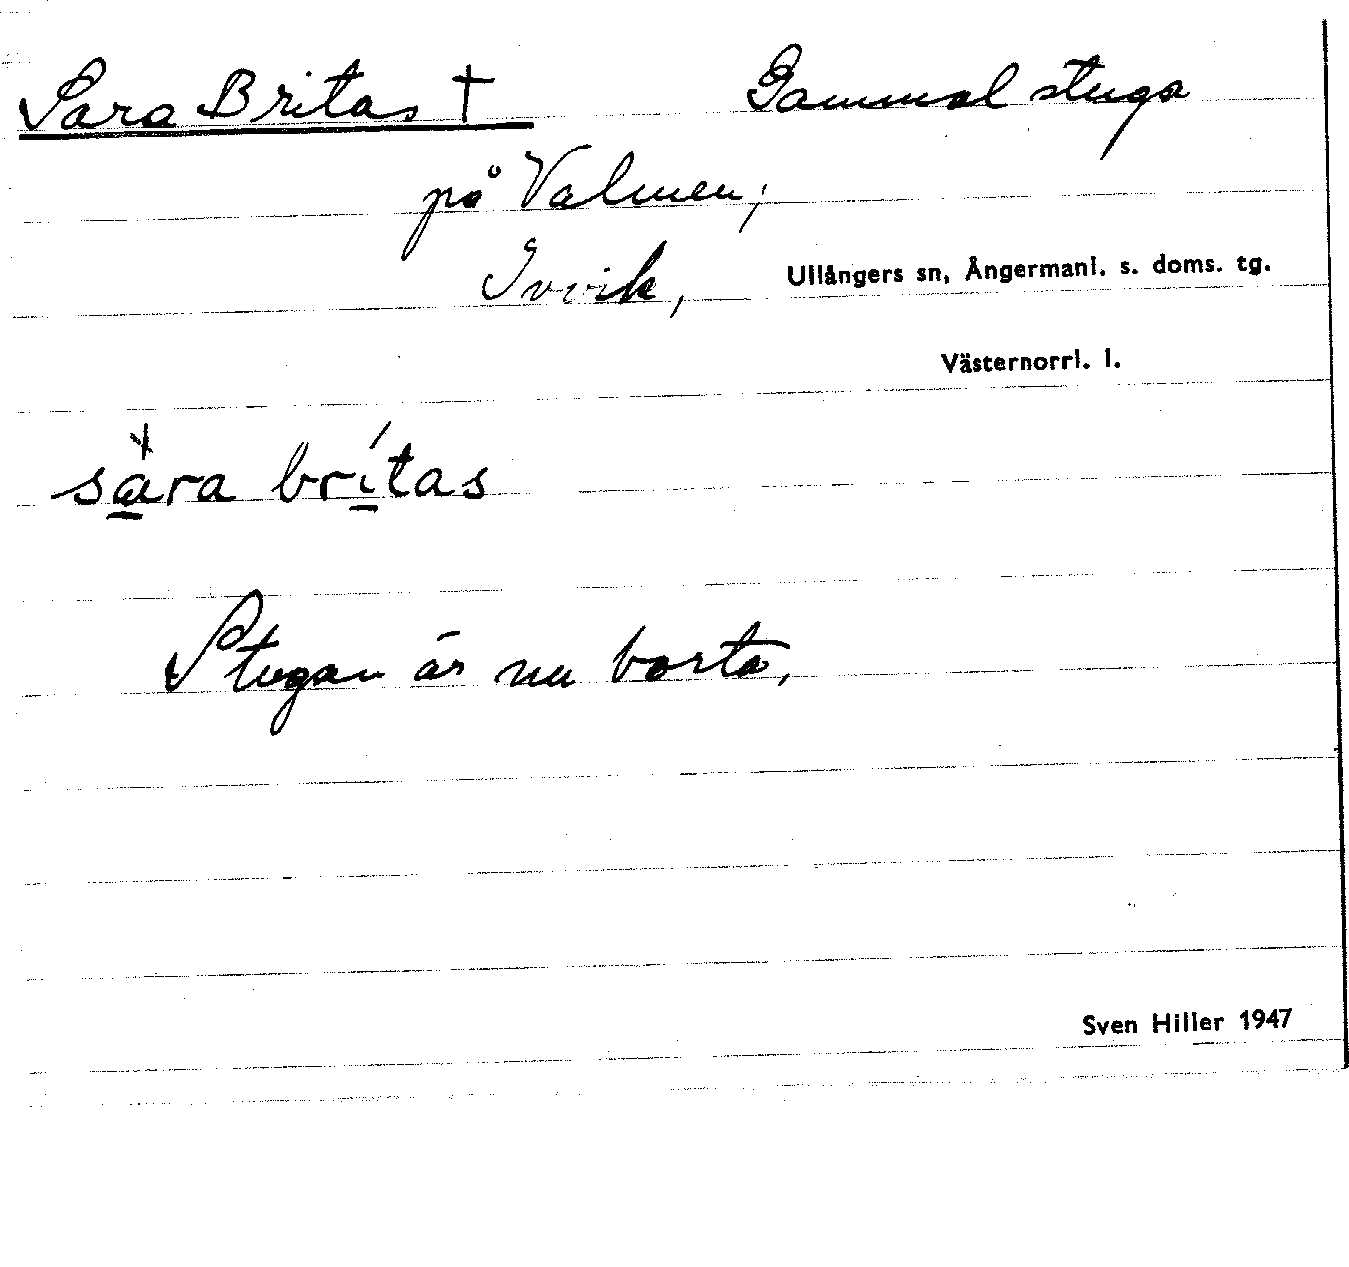 Sara Britas † Gammal stuga
på Valmen,
Invik, Ullångers sn, Ångermanl. s. doms. tg.
Västernorrl. l.
sara brítas
Stugan är nu borta,
Sven Hiller 1947